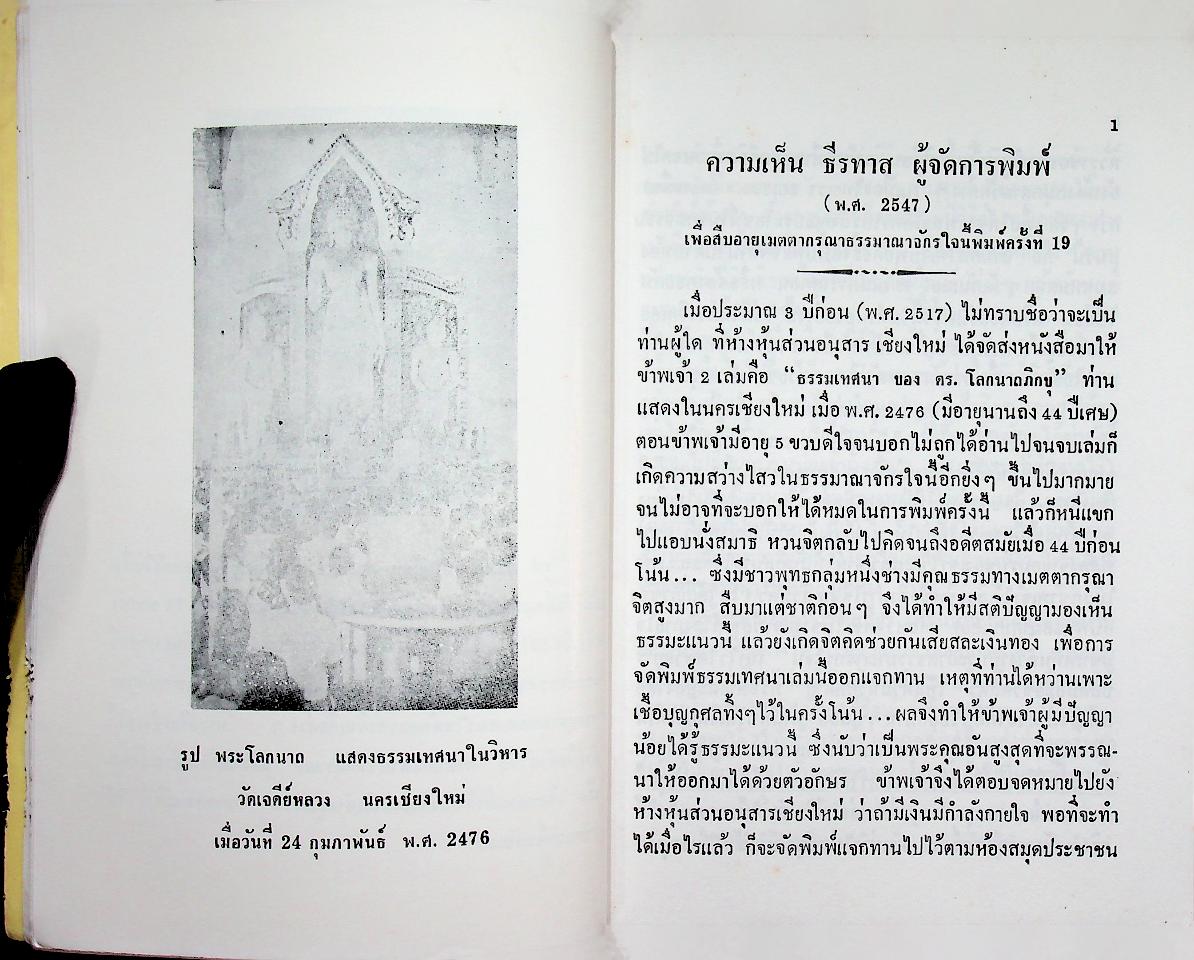 รูป พระโลกนาถ แสดงธรรมเทศนาในวิหาร
วัดเจดีย์หลวง นครเชียงใหม่
เมื่อวันที่ 24 กุมภาพันธ์ พ.ศ. 2476
1
ความเห็น ธีรทาส ผู้จัดการพิมพ์
(พ.ศ. 2547)
เพื่อสืบอายุเมตตากรุณาธรรมาณาจักรใจนี้พิมพ์ครั้งที่ 19
เมื่อประมาณ 3 ปีก่อน (พ.ศ. 2517) ไม่ทราบชื่อว่าจะเป็น
ท่านผู้ใด ที่ห้างหุ้นส่วนอนุสาร เชียงใหม่ ได้จัดส่งหนังสือมาให้
ข้าพเจ้า 2 เล่มคือ “ธรรมเทศนา ของ ดร. โลกนาถภิกขุ” ท่าน
แสดงในนครเชียงใหม่ เมื่อ พ.ศ. 2476 (มีอายุนานถึง 44 ปีเศษ)
ตอนข้าพเจ้ามีอายุ 5 ขวบดีใจจนบอกไม่ถูกได้อ่านไปจนจบเล่มก็
เกิดความสว่างไสวในธรรมาณาจักรใจนี้อีกยิ่งๆ ขึ้นไปมากมาย
จนไม่อาจที่จะบอกให้ได้หมดในการพิมพ์ครั้งนี้ แล้วก็หนีแขก
ไปแอบนั่งสมาธิ หวนจิตกลับไปคิดจนถึงอดีตสมัยเมื่อ 44 ปีก่อน
โน้น... ซึ่งมีชาวพุทธกลุ่มหนึ่งช่างมีคุณธรรมทางเมตตากรุณา
จิตสูงมาก สืบมาแต่ชาติก่อนๆ จึงได้ทำให้มีสติปัญญามองเห็น
ธรรมะแนวนี้ แล้วยังเกิดจิตคิดช่วยกันเสียสละเงินทอง เพื่อการ
จัดพิมพ์ธรรมเทศนาเล่มนี้ออกแจกทาน เหตุที่ท่านได้หว่านเพาะ
เชื้อบุญกุศลทิ้งๆไว้ในครั้งโน้น...ผลจึงทำให้ข้าพเจ้าผู้มีปัญญา
น้อยได้รู้ธรรมะแนวนี้ ซึ่งนับว่าเป็นพระคุณอันสูงสุดที่จะพรรณ-
นาให้ออกมาได้ด้วยตัวอักษร ข้าพเจ้าจึงได้ตอบจดหมายไปยัง
ห้างหุ้นส่วนอนุสารเชียงใหม่ ว่าถ้ามีเงินมีกำลังกายใจ พอที่จะทำ
ได้เมื่อไรแล้ว ก็จะจัดพิมพ์แจกทานไปไว้ตามห้องสมุดประชาชน